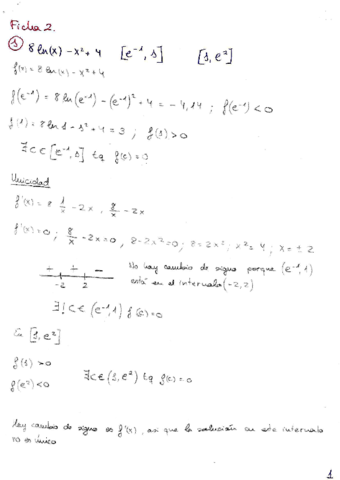 Ficha 2.
① 8 ln(x) - x² + 4 [e⁻¹, 1] [1, e²]
f(x) = 8 ln(x) - x² + 4
f(e⁻¹) = 8 ln(e⁻¹) - (e⁻¹)² + 4 = -4,14 ; f(e⁻¹) < 0
f(1) = 8 ln 1 - 1² + 4 = 3 ; f(1) > 0
∃ c ∈ [e⁻¹, 1] tq f(c) = 0
Unicidad
f'(x) = 8 · 1/x - 2x , 8/x - 2x
f'(x) = 0 ; 8/x - 2x = 0 , 8 - 2x² = 0 ; 8 = 2x² ; x² = 4 ; x = ± 2
+ + -
-2 2
No hay cambio de signo porque (e⁻¹, 1)
está en el intervalo (-2, 2)
∃! c ∈ (e⁻¹, 1) f(c) = 0
En [1, e²]
f(1) > 0
f(e²) < 0
∃ c ∈ (1, e²) tq f(c) = 0
Hay cambio de signo en f'(x), así que la solución en este intervalo
no es única
1